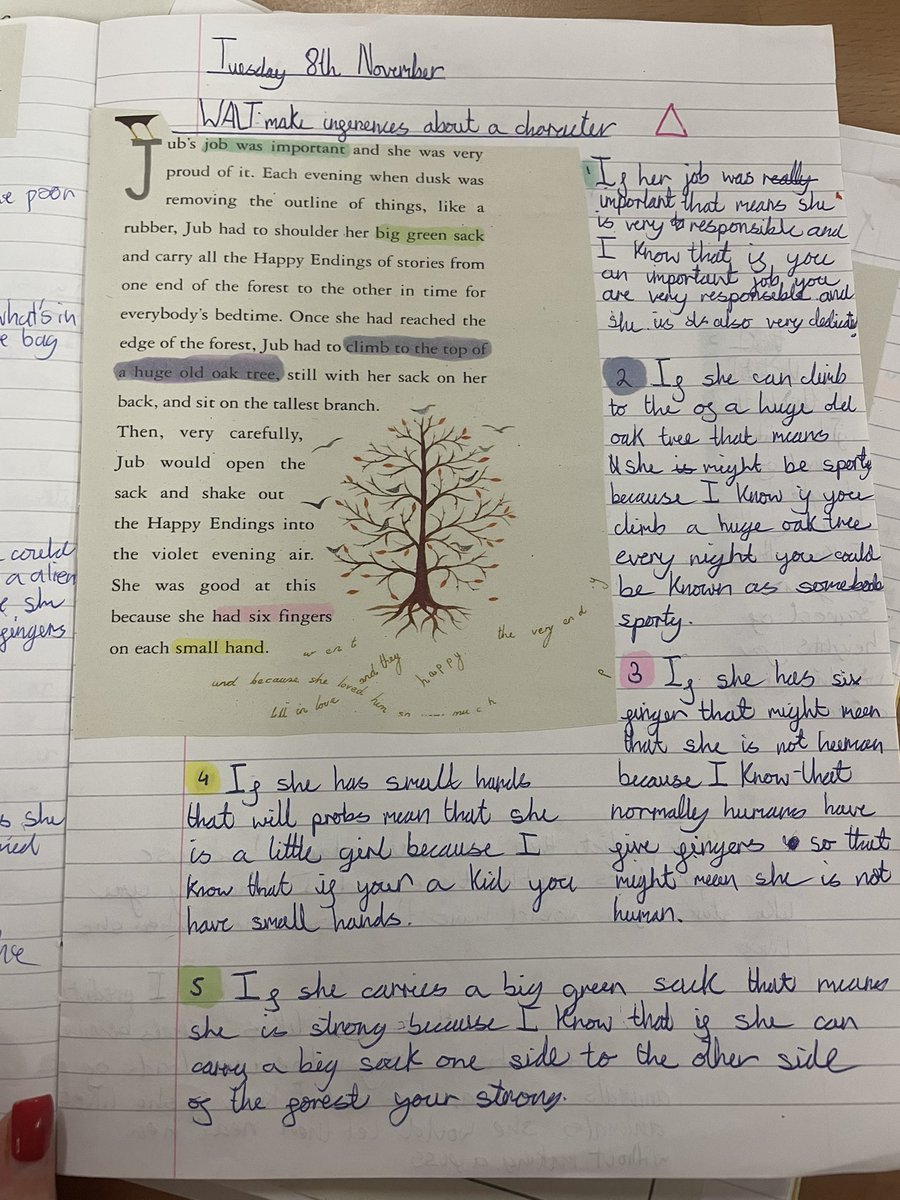 Tuesday 8th November
WALT: make inferences about a character
Jub's job was important and she was very
proud of it. Each evening when dusk was
removing the outline of things, like a
rubber, Jub had to shoulder her big green sack
and carry all the Happy Endings of stories from
one end of the forest to the other in time for
everybody's bedtime. Once she had reached the
edge of the forest, Jub had to climb to the top of
a huge old oak tree, still with her sack on her
back, and sit on the tallest branch.
Then, very carefully,
Jub would open the
sack and shake out
the Happy Endings into
the violet evening air.
She was good at this
because she had six fingers
on each small hand.
went
and because she loved him so much
and they
happy
the very end
fell in love
1 If her job was really
important that means she
is very responsible and
I know that if you
an important job you
are very responsible and
she is also very dedicate
2 If she can climb
to the of a huge old
oak tree that means
she is might be sporty
because I know if you
climb a huge oak tree
every night you could
be known as somebody
sporty.
3 If she has six
finger that might mean
that she is not heeman
because I know that
normally humans have
five fingers so that
might meen she is not
human.
4 If she has small hands
that will probs mean that she
is a little girl because I
know that if your a kid you
have small hands.
5 If she carries a big green sack that means
she is strong because I know that if she can
carry a big sack one side to the other side
of the forest your strong.
ve poor
what's in
e bag
could
a alien
e she
fingers
s she
ried